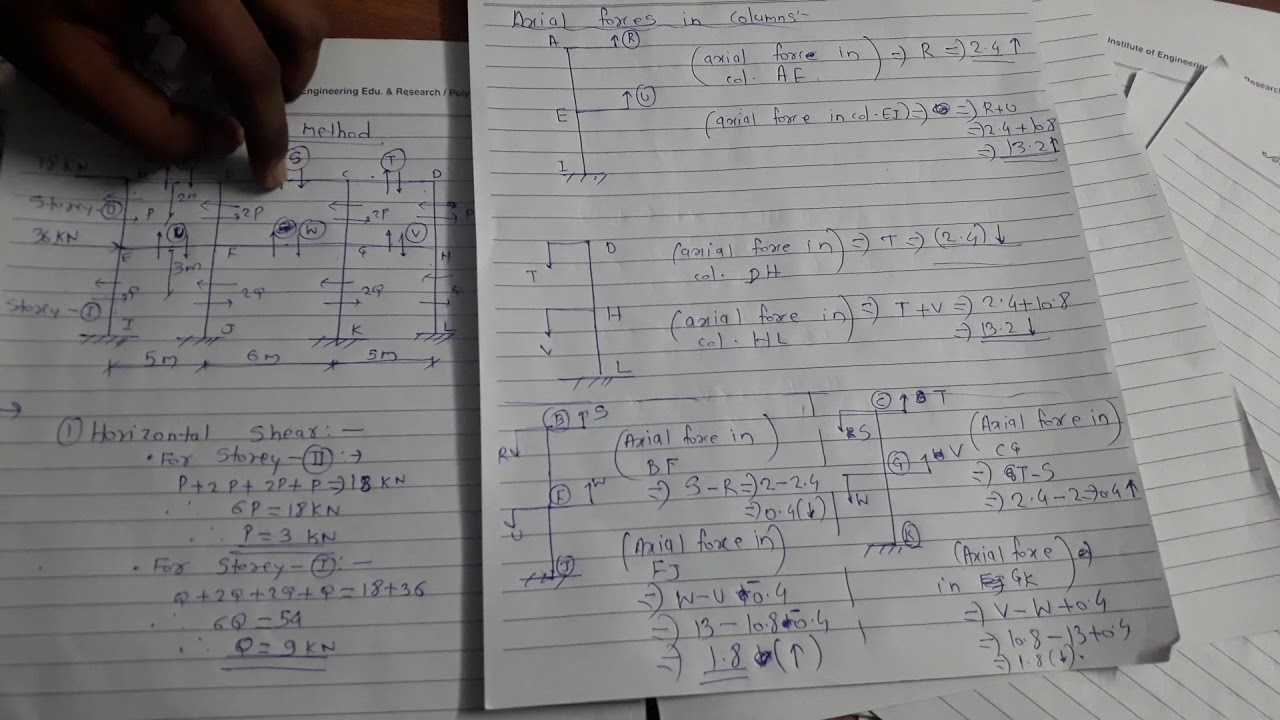 Engineering Edu. & Research / Poly
Method
18 KN
S
T
C
D
2m
Storey-II
P
2P
2P
P
36KN
U
W
V
E
F
G
H
3m
Q
2Q
2Q
Storey-I
I
J
K
L
5m
6m
5m
① Horizontal Shear:-
• For Storey-II :→
P+2P+2P+P⇒18 KN
∴ 6P=18KN
∴ P=3 KN
• For Storey-I:-
Q+2Q+2Q+Q=18+36
∴ 6Q=54
∴ Q=9KN
Axial forces in columns:-
A
↑R
(axial force in col. AE) ⇒ R ⇒ 2.4↑
↑U
E
(axial force in col. EI) ⇒ ⇒ R+U
⇒ 2.4+10.8
⇒ 13.2↑
I
D
T
(axial force in col. DH) ⇒ T ⇒ (2.4)↓
H
V
(axial force in col. HL) ⇒ T+V ⇒ 2.4+10.8
⇒ 13.2↓
L
B ↑S
R
(Axial force in BF
⇒ S-R ⇒ 2-2.4
⇒ 0.4(↓)
F ↑W
U
J
(Axial force in FJ)
⇒ W-U-0.4
⇒ 13-10.8-0.4
⇒ 1.8 (↑)
C ↑ T
S
(Axial force in CG)
⇒ T-S
⇒ 2.4-2⇒0.4↑
G ↑ V
W
K
(Axial force in GK) ⇒
⇒ V-W+0.4
⇒ 10.8-13+0.4
⇒ 1.8(↓).
Institute of Engineering
Research